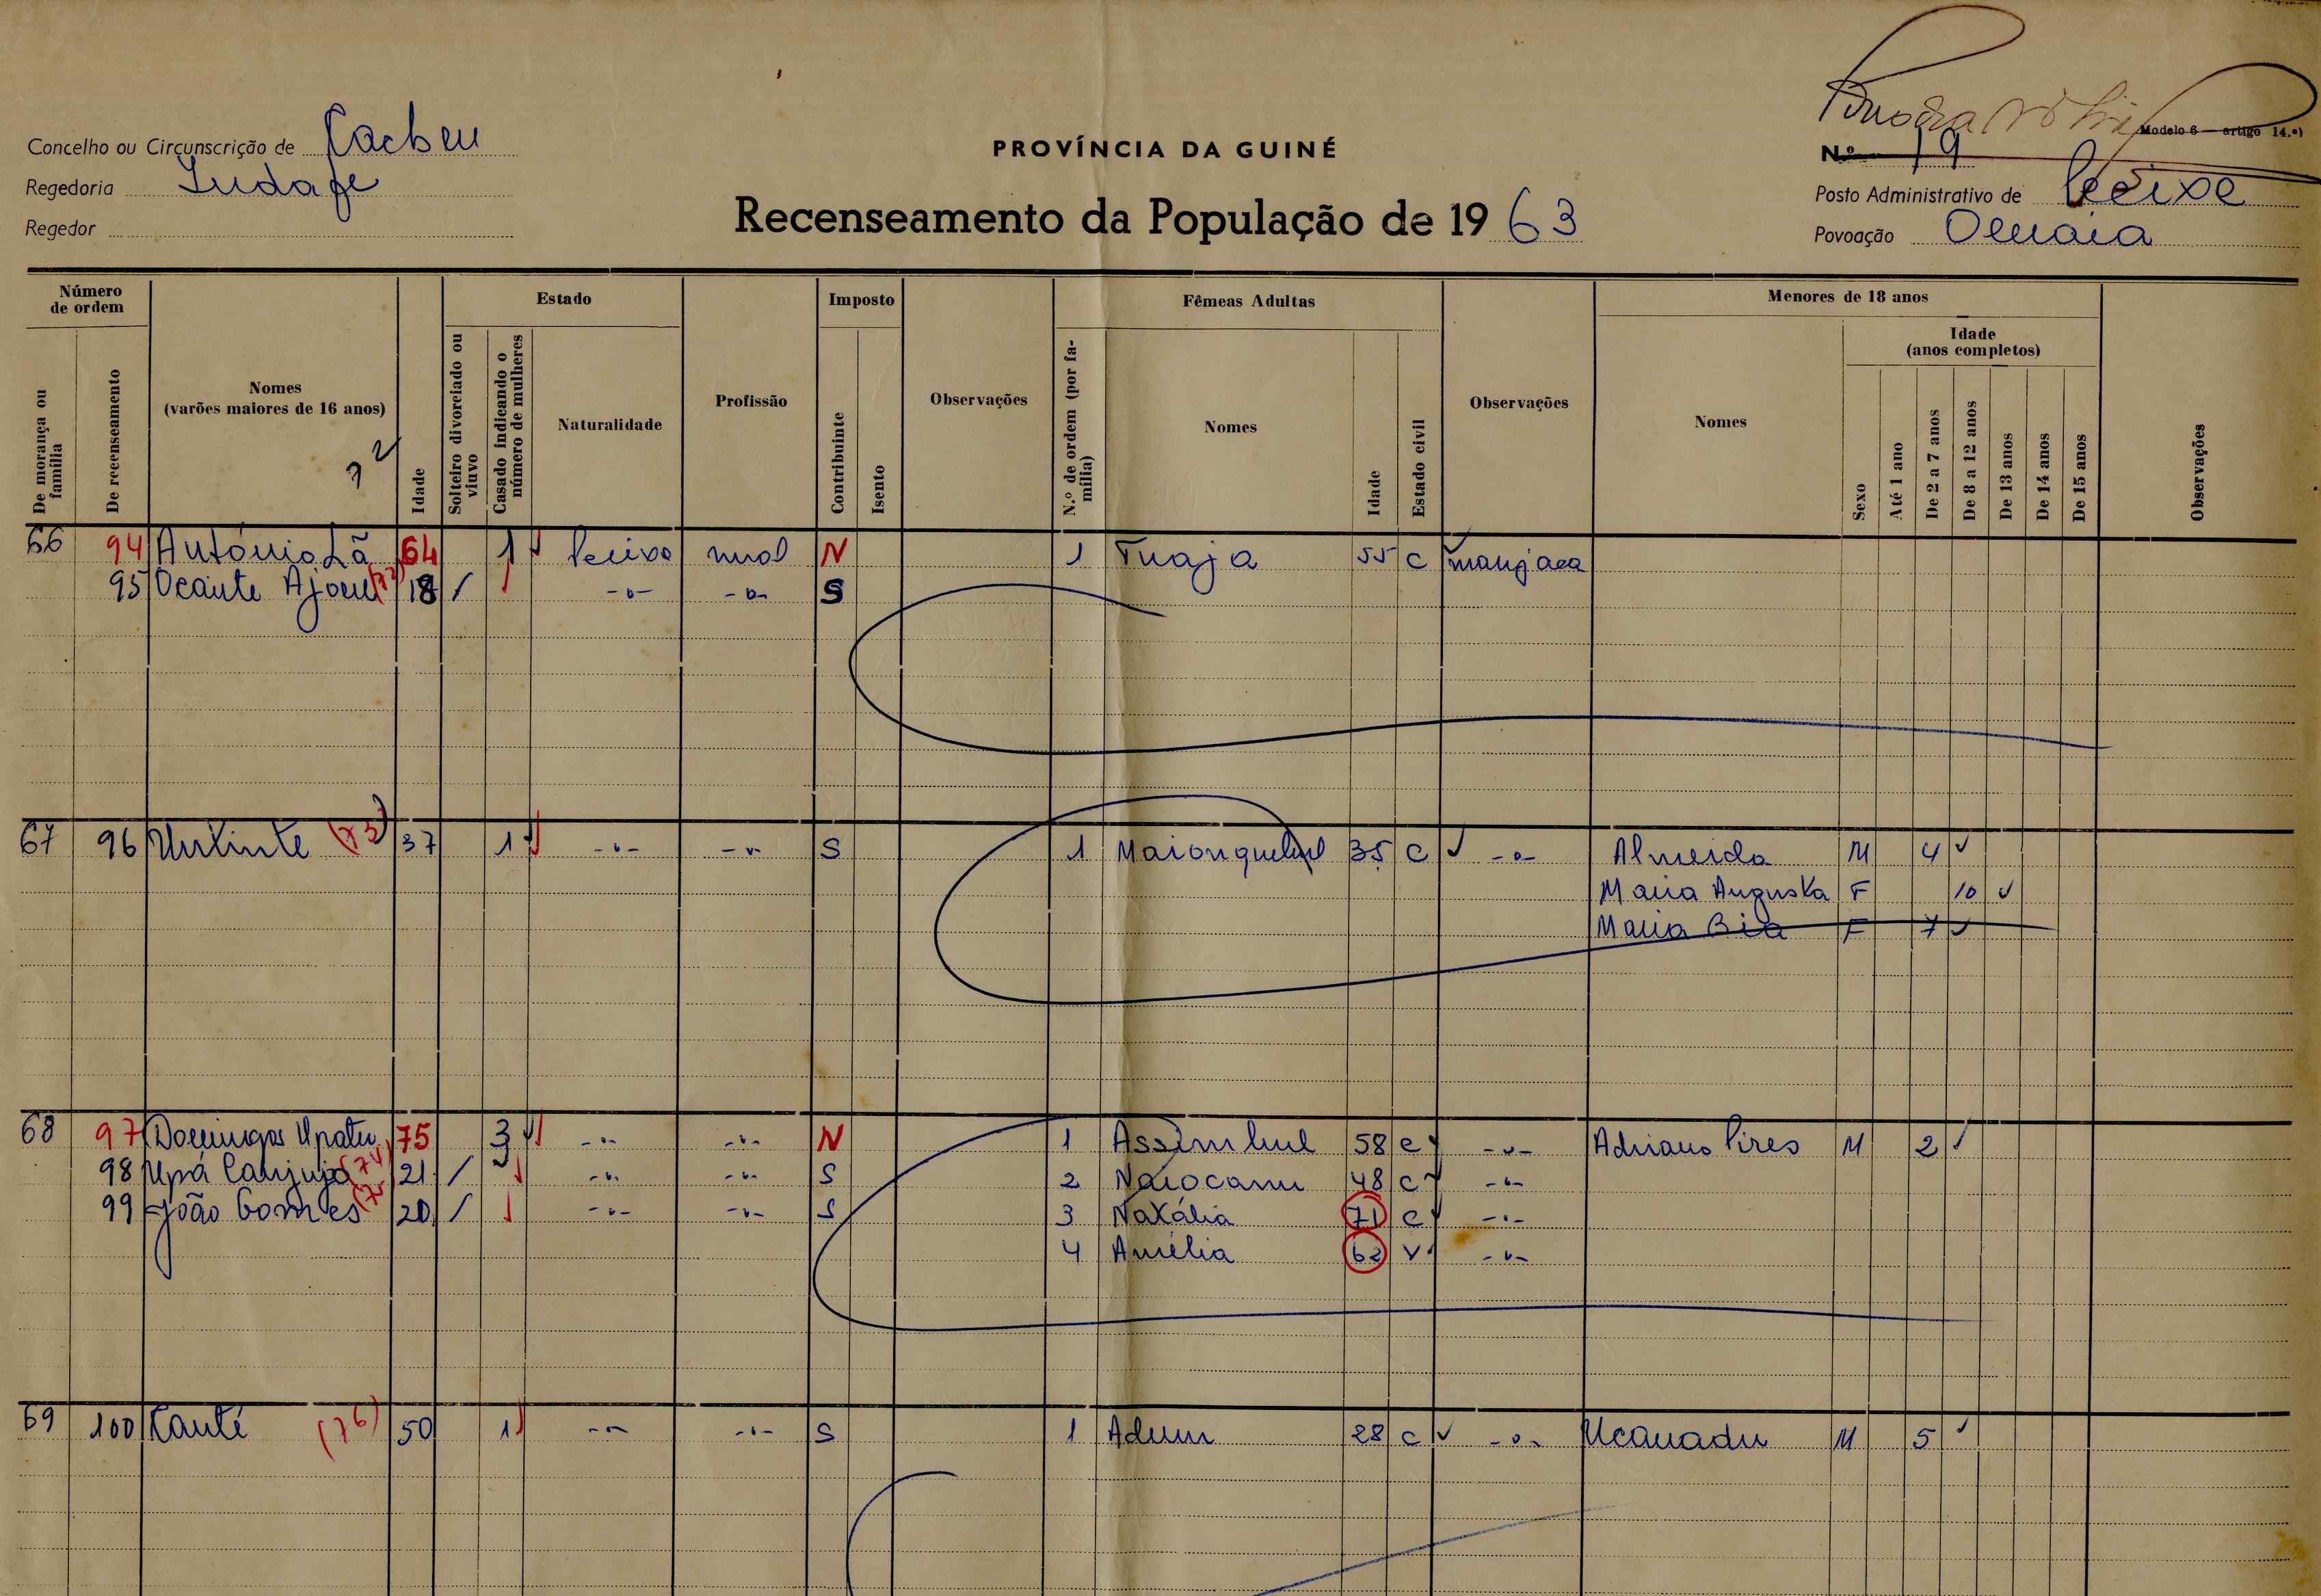 Modelo 6 — artigo 14.º)
Concelho ou Circunscrição de Cacheu
PROVÍNCIA DA GUINÉ
N.º 19
Regedoria
Posto Administrativo de Pecixe
Recenseamento da População de 1963
Regedor
Povoação
Número de ordem
Estado
Imposto
Fêmeas Adultas
Menores de 18 anos
Idade (anos completos)
De morança ou família
De recenseamento
Nomes (varões maiores de 16 anos)
Idade
Solteiro divorciado ou viuvo
Casado indicando o número de mulheres
Naturalidade
Profissão
Contribuinte
Isento
Observações
N.º de ordem (por família)
Nomes
Idade
Estado civil
Observações
Nomes
Sexo
Até 1 ano
De 2 a 7 anos
De 8 a 12 anos
De 13 anos
De 14 anos
De 15 anos
Observações
72
66 94 António Lã 64 1 Pecixe rural N 1 Tuaja 55 C manjaca
95 Ocante (72) 18 / -"- -"- S
67 96 (73) 37 1 -"- -"- S 1 35 C -"- Almeida M 4
Maria Augusta F 10
Maria Bia F 7
68 97 Domingos Upatu 75 3 -"- -"- N 1 Assimbul 58 C -"- Adriano Pires M 2
98 Upá Canjuja (74) 21 / -"- -"- S 2 Naiocanu 48 C -"-
99 João Gomes (75) 20 / -"- -"- S 3 Natália 71 C -"-
4 Amélia 62 V -"-
69 100 Canté (76) 50 1 -"- -"- S 1 Adum 28 C -"- Ucanadu M 5